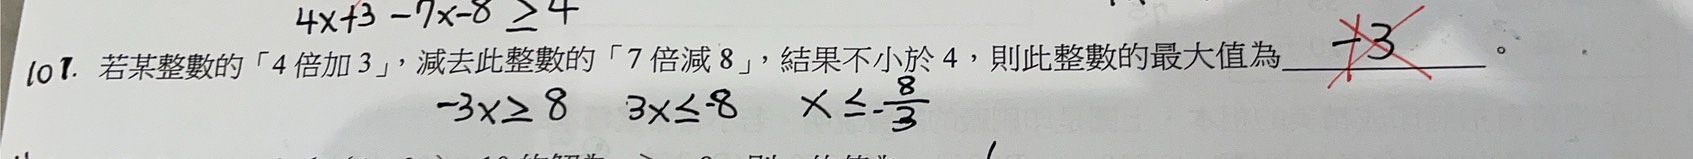 4x+3-7x-8≥4
107. 若某整數的「4倍加3」，減去此整數的「7倍減8」，結果不小於4，則此整數的最大值為 -3 。
-3x≥8 3x≤-8 x≤-8/3